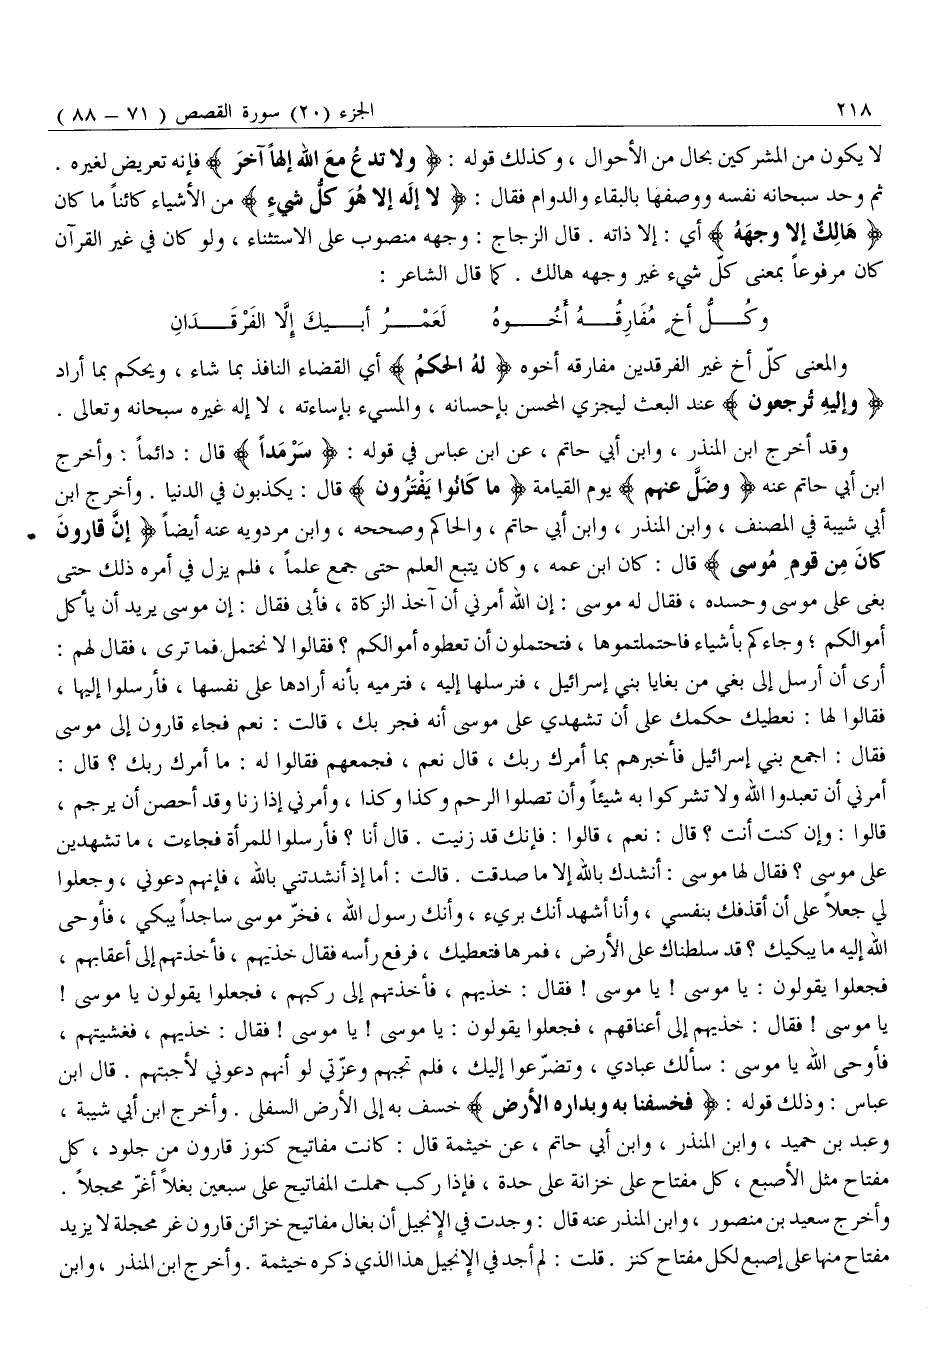 ٢١٨
الجزء (٢٠) سورة القصص ( ٧١ – ٨٨ )
لا يكون من المشركين بحال من الأحوال ، وكذلك قوله : ﴿ ولا تدعُ معَ الله إلهاً آخرَ ﴾ فإنه تعريض لغيره .
ثم وحد سبحانه نفسه ووصفها بالبقاء والدوام فقال : ﴿ لا إلَه إلا هُوَ كلُّ شيءٍ ﴾ من الأشياء كائناً ما كان
﴿ هَالِكٌ إلا وجهَهُ ﴾ أي : إلا ذاته . قال الزجاج : وجهه منصوب على الاستثناء ، ولو كان في غير القرآن
كان مرفوعاً بمعنى كلّ شيء غير وجهه هالك . كما قال الشاعر :
وكُــلُّ أخٍ مُفَارِقُــهُ أَخُــوهُ لَعَمْــرُ أبــيكَ إلَّا الفَرْقَــدَانِ
والمعنى كلّ أخ غير الفرقدين مفارقه أخوه ﴿ لهُ الحكمُ ﴾ أي القضاء النافذ بما شاء ، ويحكم بما أراد
﴿ وإليهِ تُرجعون ﴾ عند البعث ليجزي المحسن بإحسانه ، والمسيء بإساءته ، لا إله غيره سبحانه وتعالى .
وقد أخرج ابن المنذر ، وابن أبي حاتم ، عن ابن عباس في قوله : ﴿ سَرْمَداً ﴾ قال : دائماً : وأخرج
ابن أبي حاتم عنه ﴿ وضلَّ عنهم ﴾ يوم القيامة ﴿ ما كَانُوا يَفْتَرُون ﴾ قال : يكذبون في الدنيا . وأخرج ابن
أبي شيبة في المصنف ، وابن المنذر ، وابن أبي حاتم ، والحاكم وصححه ، وابن مردويه عنه أيضاً ﴿ إنَّ قارونَ
كانَ مِن قومِ مُوسى ﴾ قال : كان ابن عمه ، وكان يتبع العلم حتى جمع علماً ، فلم يزل في أمره ذلك حتى
بغى على موسى وحسده ، فقال له موسى : إن الله أمرني أن آخذ الزكاة ، فأبى فقال : إن موسى يريد أن يأكل
أموالكم ؛ وجاءكم بأشياء فاحتملتموها ، فتحتملون أن تعطوه أموالكم ؟ فقالوا لا نحتمل فما ترى ، فقال لهم :
أرى أن أرسل إلى بغي من بغايا بني إسرائيل ، فنرسلها إليه ، فترميه بأنه أرادها على نفسها ، فأرسلوا إليها ،
فقالوا لها : نعطيك حكمك على أن تشهدي على موسى أنه فجر بك ، قالت : نعم فجاء قارون إلى موسى
فقال : اجمع بني إسرائيل فأخبرهم بما أمرك ربك ، قال نعم ، فجمعهم فقالوا له : ما أمرك ربك ؟ قال :
أمرني أن تعبدوا الله ولا تشركوا به شيئاً وأن تصلوا الرحم وكذا وكذا ، وأمرني إذا زنا وقد أحصن أن يرجم ،
قالوا : وإن كنت أنت ؟ قال : نعم ، قالوا : فإنك قد زنيت . قال أنا ؟ فأرسلوا للمرأة فجاءت ، ما تشهدين
على موسى ؟ فقال لها موسى : أنشدك بالله إلا ما صدقت . قالت : أما إذ أنشدتني بالله ، فإنهم دعوني ، وجعلوا
لي جعلاً على أن أقذفك بنفسي ، وأنا أشهد أنك بريء ، وأنك رسول الله ، فخرّ موسى ساجداً يبكي ، فأوحى
الله إليه ما يبكيك ؟ قد سلطناك على الأرض ، فمرها فتعطيك ، فرفع رأسه فقال خذيهم ، فأخذتهم إلى أعقابهم ،
فجعلوا يقولون : يا موسى ! يا موسى ! فقال : خذيهم ، فأخذتهم إلى ركبهم ، فجعلوا يقولون يا موسى !
يا موسى ! فقال : خذيهم إلى أعناقهم ، فجعلوا يقولون : يا موسى ! يا موسى ! فقال : خذيهم ، فغشيتهم ،
فأوحى الله يا موسى : سألك عبادي ، وتضرّعوا إليك ، فلم تجبهم وعزّتي لو أنهم دعوني لأجبتهم . قال ابن
عباس : وذلك قوله : ﴿ فخسفنا به وبداره الأرض ﴾ خسف به إلى الأرض السفلى . وأخرج ابن أبي شيبة ،
وعبد بن حميد ، وابن المنذر ، وابن أبي حاتم ، عن خيثمة قال : كانت مفاتيح كنوز قارون من جلود ، كل
مفتاح مثل الأصبع ، كل مفتاح على خزانة على حدة ، فإذا ركب حملت المفاتيح على سبعين بغلاً أغرّ محجلاً .
وأخرج سعيد بن منصور ، وابن المنذر عنه قال : وجدت في الإنجيل أن بغال مفاتيح خزائن قارون غر محجلة لا يزيد
مفتاح منها على إصبع لكل مفتاح كنز . قلت : لم أجد في الإنجيل هذا الذي ذكره خيثمة . وأخرج ابن المنذر ، وابن